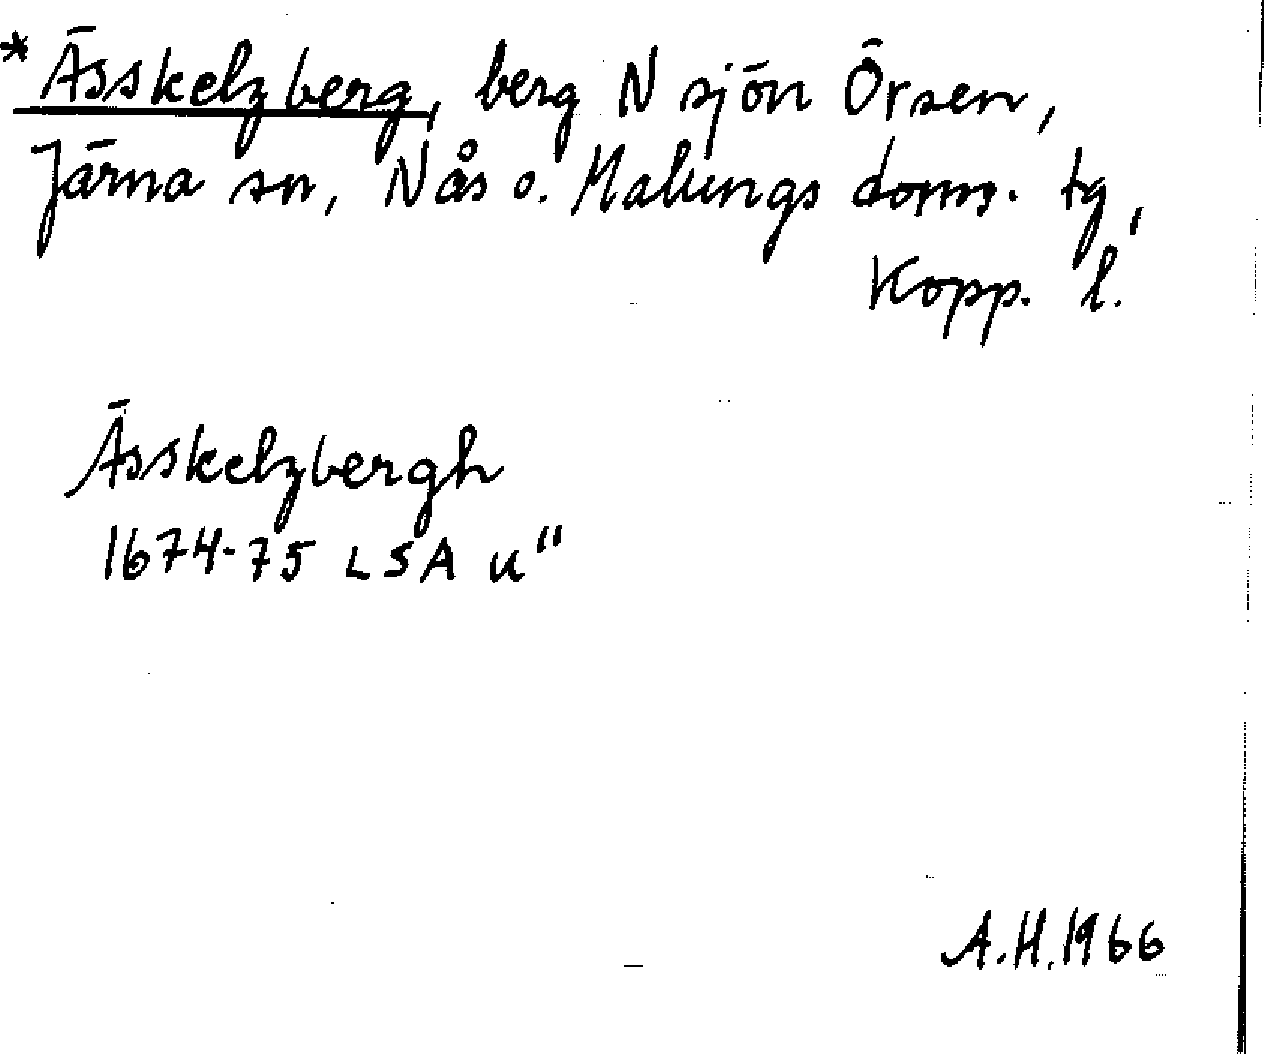 *Ässkelzberg, berg N sjön Örsen,
Järna sn, Nås o. Malungs doms. tg,
Kopp. l.
Ässkelzbergh
1674-75 LSA u"
A.H. 1966